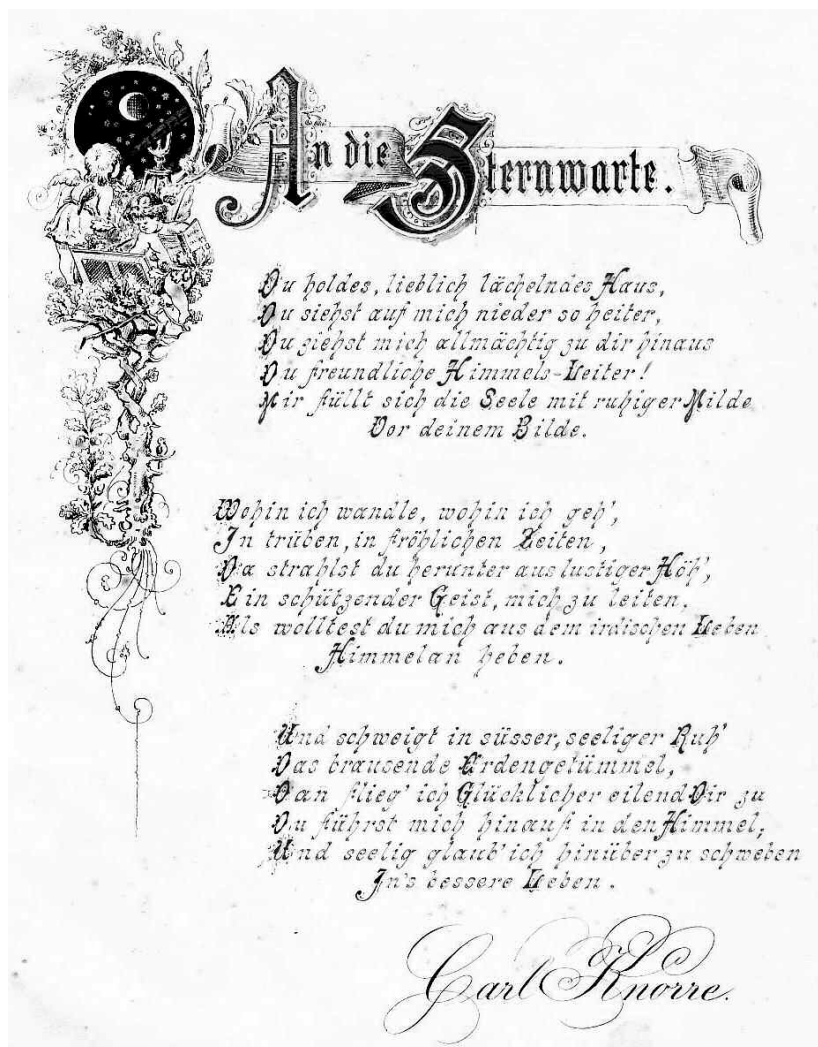 An die Sternwarte.
Du holdes, lieblich lächelndes Haus,
Du siehst auf mich nieder so heiter,
Du ziehst mich allmächtig zu dir hinaus
Du freundliche Himmels-Leiter!
Mir füllt sich die Seele mit ruhiger Milde
Vor deinem Bilde.
Wohin ich wandle, wohin ich geh',
In trüben, in fröhlichen Zeiten,
Da strahlst du herunter aus lustiger Höh',
Ein schützender Geist, mich zu leiten,
Als wolltest du mich aus dem irdischen Leben
Himmelan heben.
Und schweigt in süsser, seeliger Ruh'
Das brausende Erdengetümmel,
Dan flieg' ich Glücklicher eilend Dir zu
Du führst mich hinauf in den Himmel,
Und seelig glaub' ich hinüber zu schweben
In's bessere Leben.
Carl Knorre.